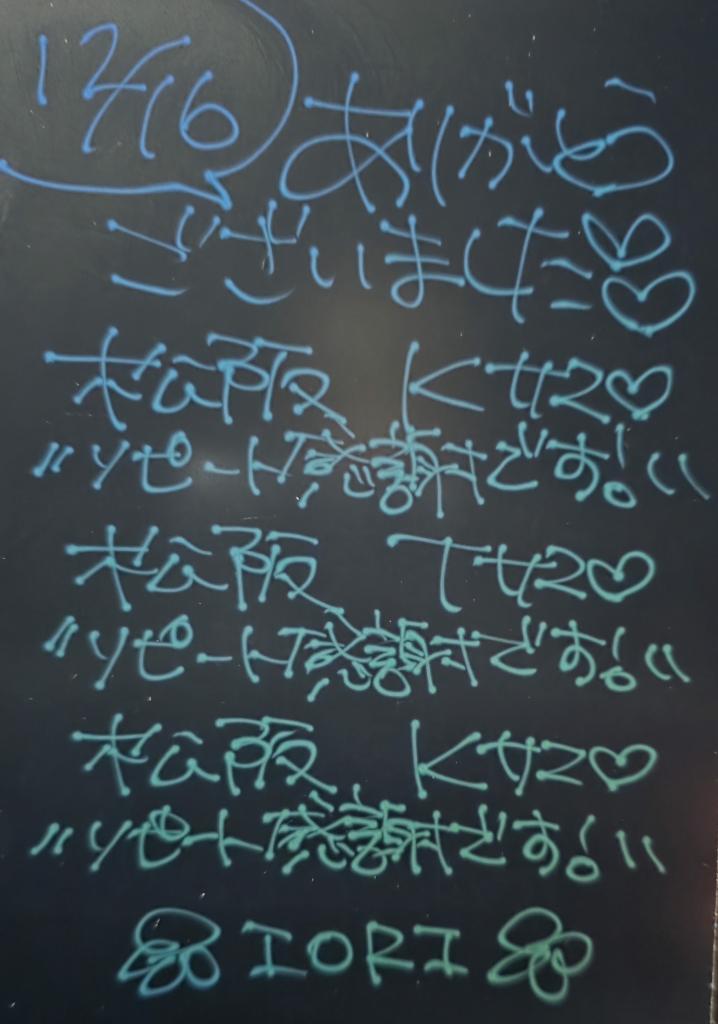 12/16
ありがとう
ございました♡♡
松阪 Kサマ♡
〃リピート感謝です!〃
松阪 Tサマ♡
〃リピート感謝です!〃
松阪 Kサマ♡
〃リピート感謝です!〃
IORI